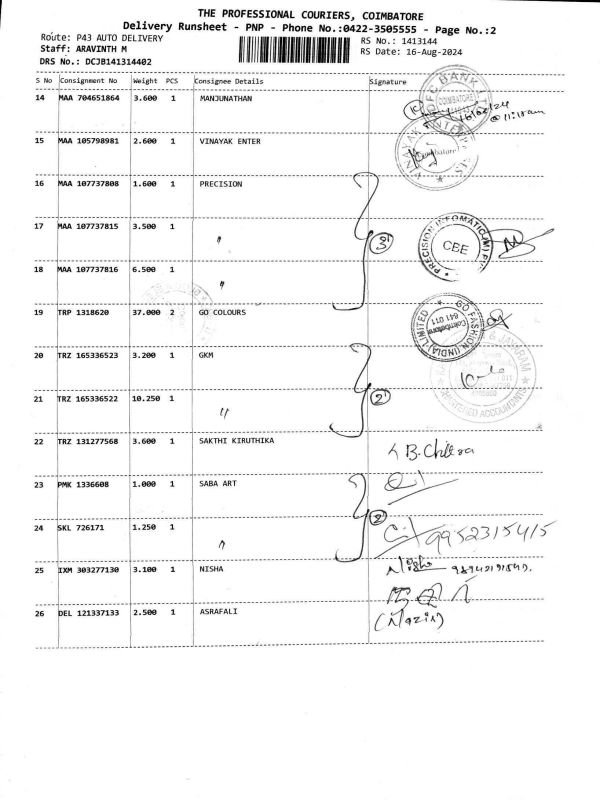 THE PROFESSIONAL COURIERS, COIMBATORE
Delivery Runsheet - PNP - Phone No.:0422-3505555 - Page No.:2
Route: P43 AUTO DELIVERY
RS No.: 1413144
Staff: ARAVINTH M
RS Date: 16-Aug-2024
DRS No.: DCJB141314402
S No Consignment No Weight PCS Consignee Details Signature
14 MAA 704651864 3.600 1 MANJUNATHAN
COIMBATORE
16/08/24
@ 11:18am
15 MAA 105798981 2.600 1 VINAYAK ENTER
VINAYAK ENTERPRISES
Coimbatore
16 MAA 107737808 1.600 1 PRECISION
17 MAA 107737815 3.500 1 "
3
PRECISION INFOMATIC(M) P
CBE
18 MAA 107737816 6.500 1 "
19 TRP 1318620 37.000 2 GO COLOURS
GO FASHION (INDIA) LIMITED
Coimbatore
641 011
20 TRZ 165336523 3.200 1 GKM
& JAYARAM
CHARTERED ACCOUNTANTS
21 TRZ 165336522 10.250 1 "
2
22 TRZ 131277568 3.600 1 SAKTHI KIRUTHIKA
B. Chitra
23 PMK 1336608 1.000 1 SABA ART
2
24 SKL 726171 1.250 1 "
9952315415
25 IXM 303277130 3.100 1 NISHA
Nisha
26 DEL 121337133 2.500 1 ASRAFALI
(Nazir)